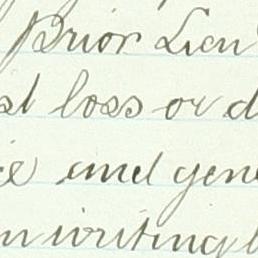 Prior Lien
loss or
and gen
writing